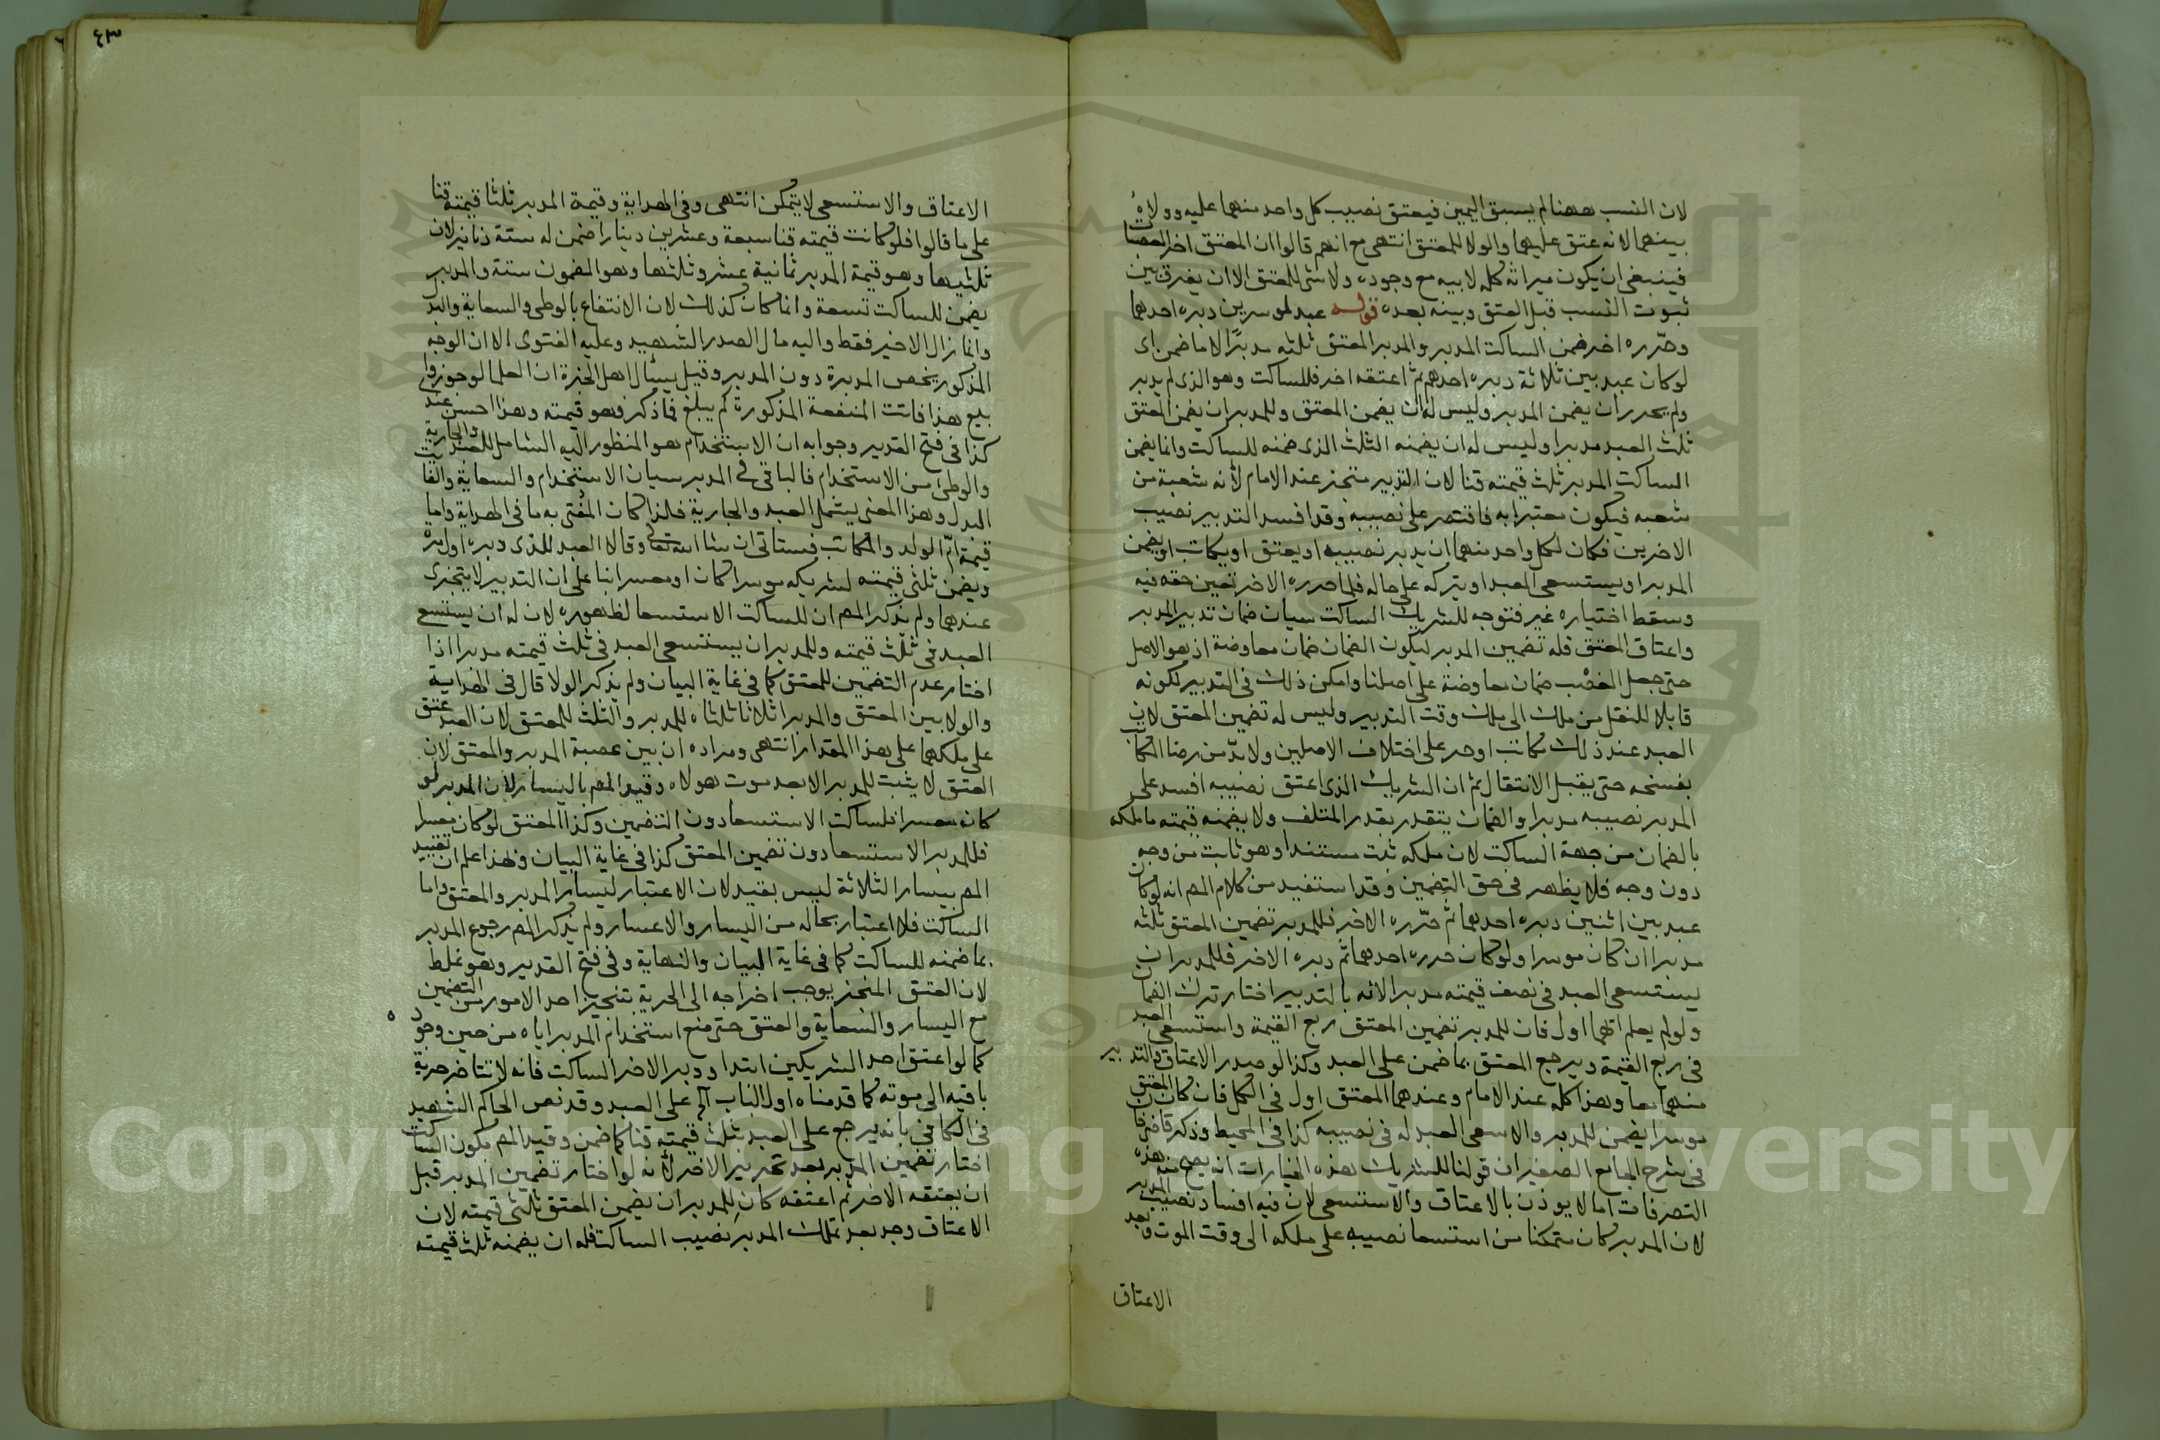 لان النسب ههنا لم يسبق اليمين فيعتق نصيب كل واحد منهما عليه وولاؤه
بينهما لانه عتق عليهما والولا للمعتق انتهى مع انهم قالوا ان المعتق اخر العصبات
فينبغي ان يكون ميراثه كله لابيه مع وجوده ولا شي للمعتق الا ان يفرق بين
ثبوت النسب قبل العتق وبينه بعده قوله عبد لموسرين دبره احدهما
وحرره اخر ضمن الساكت المدبر والمدبر المعتق ثلثه مدبرا لا ما ضمن اى
لو كان عبد بين ثلاثة دبره احدهم ثم اعتقه اخر فللساكت وهو الذى لم يدبر
ولم يحرر ان يضمن المدبر وليس له ان يضمن المعتق وللمدبر ان يضمن المعتق
ثلث العبد مدبرا وليس له ان يضمنه الثلث الذى ضمنه للساكت وانما يضمن
الساكت المدبر ثلث قيمته قنا لان التدبير متجز عند الامام لانه شعبة من
شعبه فيكون معتبرا به فاقتصر على نصيبه وقد افسد التدبير نصيب
الاخرين فكان لكل واحد منهما ان يدبر نصيبه او يعتق او يكاتب او يضمن
المدبر او يستسعى العبد او يتركه على حاله فلما حرره الاخر تعين حقه فيه
وسقط اختياره غير فتوجه للشريك الساكت سببان ضمان تدبير المدبر
واعتاق المعتق فله تضمين المدبر ليكون الضمان ضمان معاوضة اذ هو الاصل
حتى جعل الغصب ضمان معاوضة على اصلنا وامكن ذلك في التدبير لكونه
قابلا للنقل من ملك الى ملك وقت التدبير وليس له تضمين المعتق لان
العبد عند ذلك مكاتب او حر على اختلاف الاصلين ولا بد من رضا المكاتب
بفسخه حتى يقبل الانتقال ثم ان الشريك الذى اعتق نصيبه افسد على
المدبر نصيبه مدبرا والضمان يتقدر بقدر المتلف ولا يضمنه قيمته ما ملكه
بالضمان من جهة الساكت لان ملكه ثبت مستندا وهو ثابت من وجه
دون وجه فلا يظهر في حق التضمين وقد استفيد من كلام المص انه لو كان
عبد بين اثنين دبره احدهما ثم حرره الاخر فللمدبر تضمين المعتق ثلثه
مدبرا ان كان موسرا ولو كان حرره احدهما ثم دبره الاخر فللمدبر ان
يستسعى العبد في نصف قيمته مدبرا لانه بالتدبير اختار ترك الضمان
ولو لم يعلم ايهما اول فان للمدبر تضمين المعتق ربع القيمة واستسعى العبد
في ربع القيمة ويرجع المعتق بما ضمن على العبد وكذا لو صدر الاعتاق والتدبير
منهما معا وهذا كله عند الامام وعندهما المعتق اول في الكل فان كان المعتق
موسرا يضمن للمدبر والا سعى العبد له في نصيبه كذا في المحيط وذكر قاضى خان
في شرح الجامع الصغير ان قولنا للشريك هذه الخيارات انه يصح منه هذه
التصرفات اما لا يوذن بالاعتاق والاستسعى لان فيه افساد نصيب المدبر
لان المدبر كان متمكنا من استسعا نصيبه على ملكه الى وقت الموت وبعد
الاعتاق
٤٣
الاعتاق والاستسعى لا يتمكن انتهى وفي الهداية وقيمة المدبر ثلثا قيمته قنا
على ما قالوا فلو كانت قيمته قنا سبعة وعشرين دينارا ضمن له ستة دنانير لان
ثلثيها وهو قيمة المدبر ثمانية عشر وثلثها وهو المضمون ستة والمدبر
يضمن للساكت تسعة وانما كان كذلك لان الانتفاع بالوطى والسعاية والبدل
وانما زال الاخير فقط واليه مال الصدر الشهيد وعليه الفتوى الا ان الوجه
المذكور يخص المدبرة دون المدبر وقيل يسئال اهل الخبرة ان العلما لو جوزوا
بيع هذا فاتت المنفعة المذكورة كم يبلغ فما ذكر فهو قيمته وهذا احسن عندى
كذا في فتح القدير وجوابه ان الاستخدام هو المنظور اليه الشامل للعبد والجارية
والوطئ من الاستخدام فالباقي في المدبر سيان الاستخدام والسعاية والفائت
البدل وهذا المعنى يشمل العبد والجارية فلذا كان المفتى به ما في الهداية واما
قيمة ام الولد والمكاتب فستاتى ان شا الله تعالى وقالا العبد للذى دبره اول مرة
ويضمن ثلثى قيمته لشريكه موسرا كان او معسرا بنا على ان التدبير لا يتجزى
عندهما ولم يذكر المص ان للساكت الاستسعا لظهوره لان له ان يستسع
العبد في ثلث قيمته وللمدبر ان يستسعى العبد في ثلث قيمته مدبرا اذا
اختار عدم التضمين للمعتق كما في غاية البيان ولم يذكر الولا قال في الهداية
والولا بين المعتق والمدبر اثلاثا ثلثاه للمدبر والثلث للمعتق لان العبد عتق
على ملكهما على هذا المقدار انتهى ومراده ان بين عصبة المدبر والمعتق لان
العتق لا يثبت للمدبر الا بعد موت هولاه وقيد المص باليسار لان المدبر لو
كان معسرا فلساكت الاستسعا دون التضمين وكذا المعتق لو كان معسرا
فللمدبر الاستسعا دون تضمين المعتق كذا في غاية البيان وبهذا علم ان تقييد
المص بيسار الثلاثة ليس بقيد لان الاعتبار ليسار المدبر والمعتق واما
الساكت فلا اعتبار بحاله من اليسار والاعسار ولم يذكر المص رجوع المدبر
بما ضمنه للساكت كما في غاية البيان والنهاية وفي فتح القدير وهو غلط
لان العتق المنجز يوجب اخراجه الى الحرية بتنجيز احد الامور من التضمين
مع اليسار والسعاية والعتق حتى منع استخدام المدبر اياه من حين وجوده
كما لو اعتق احد الشريكين ابتدا ودبر الاخر الساكت فانه لا تتاخر حرية
باقيه الى موته كما قدمناه اول الباب اه على العبد وقد نص الحاكم الشهيد
في الكافي بانه يرجع على العبد بثلث قيمته قنا كما ضمن وقيد المص بكون الساكت
اختار تضمين المدبر بعد تحرير الاخر لانه لو اختار تضمين المدبر قبل
ان يعتقه الاخر ثم اعتقه كان للمدبر ان يضمن المعتق ثلثى قيمته لان
الاعتاق وجد بعد تملك المدبر نصيب الساكت فله ان يضمنه ثلث قيمته